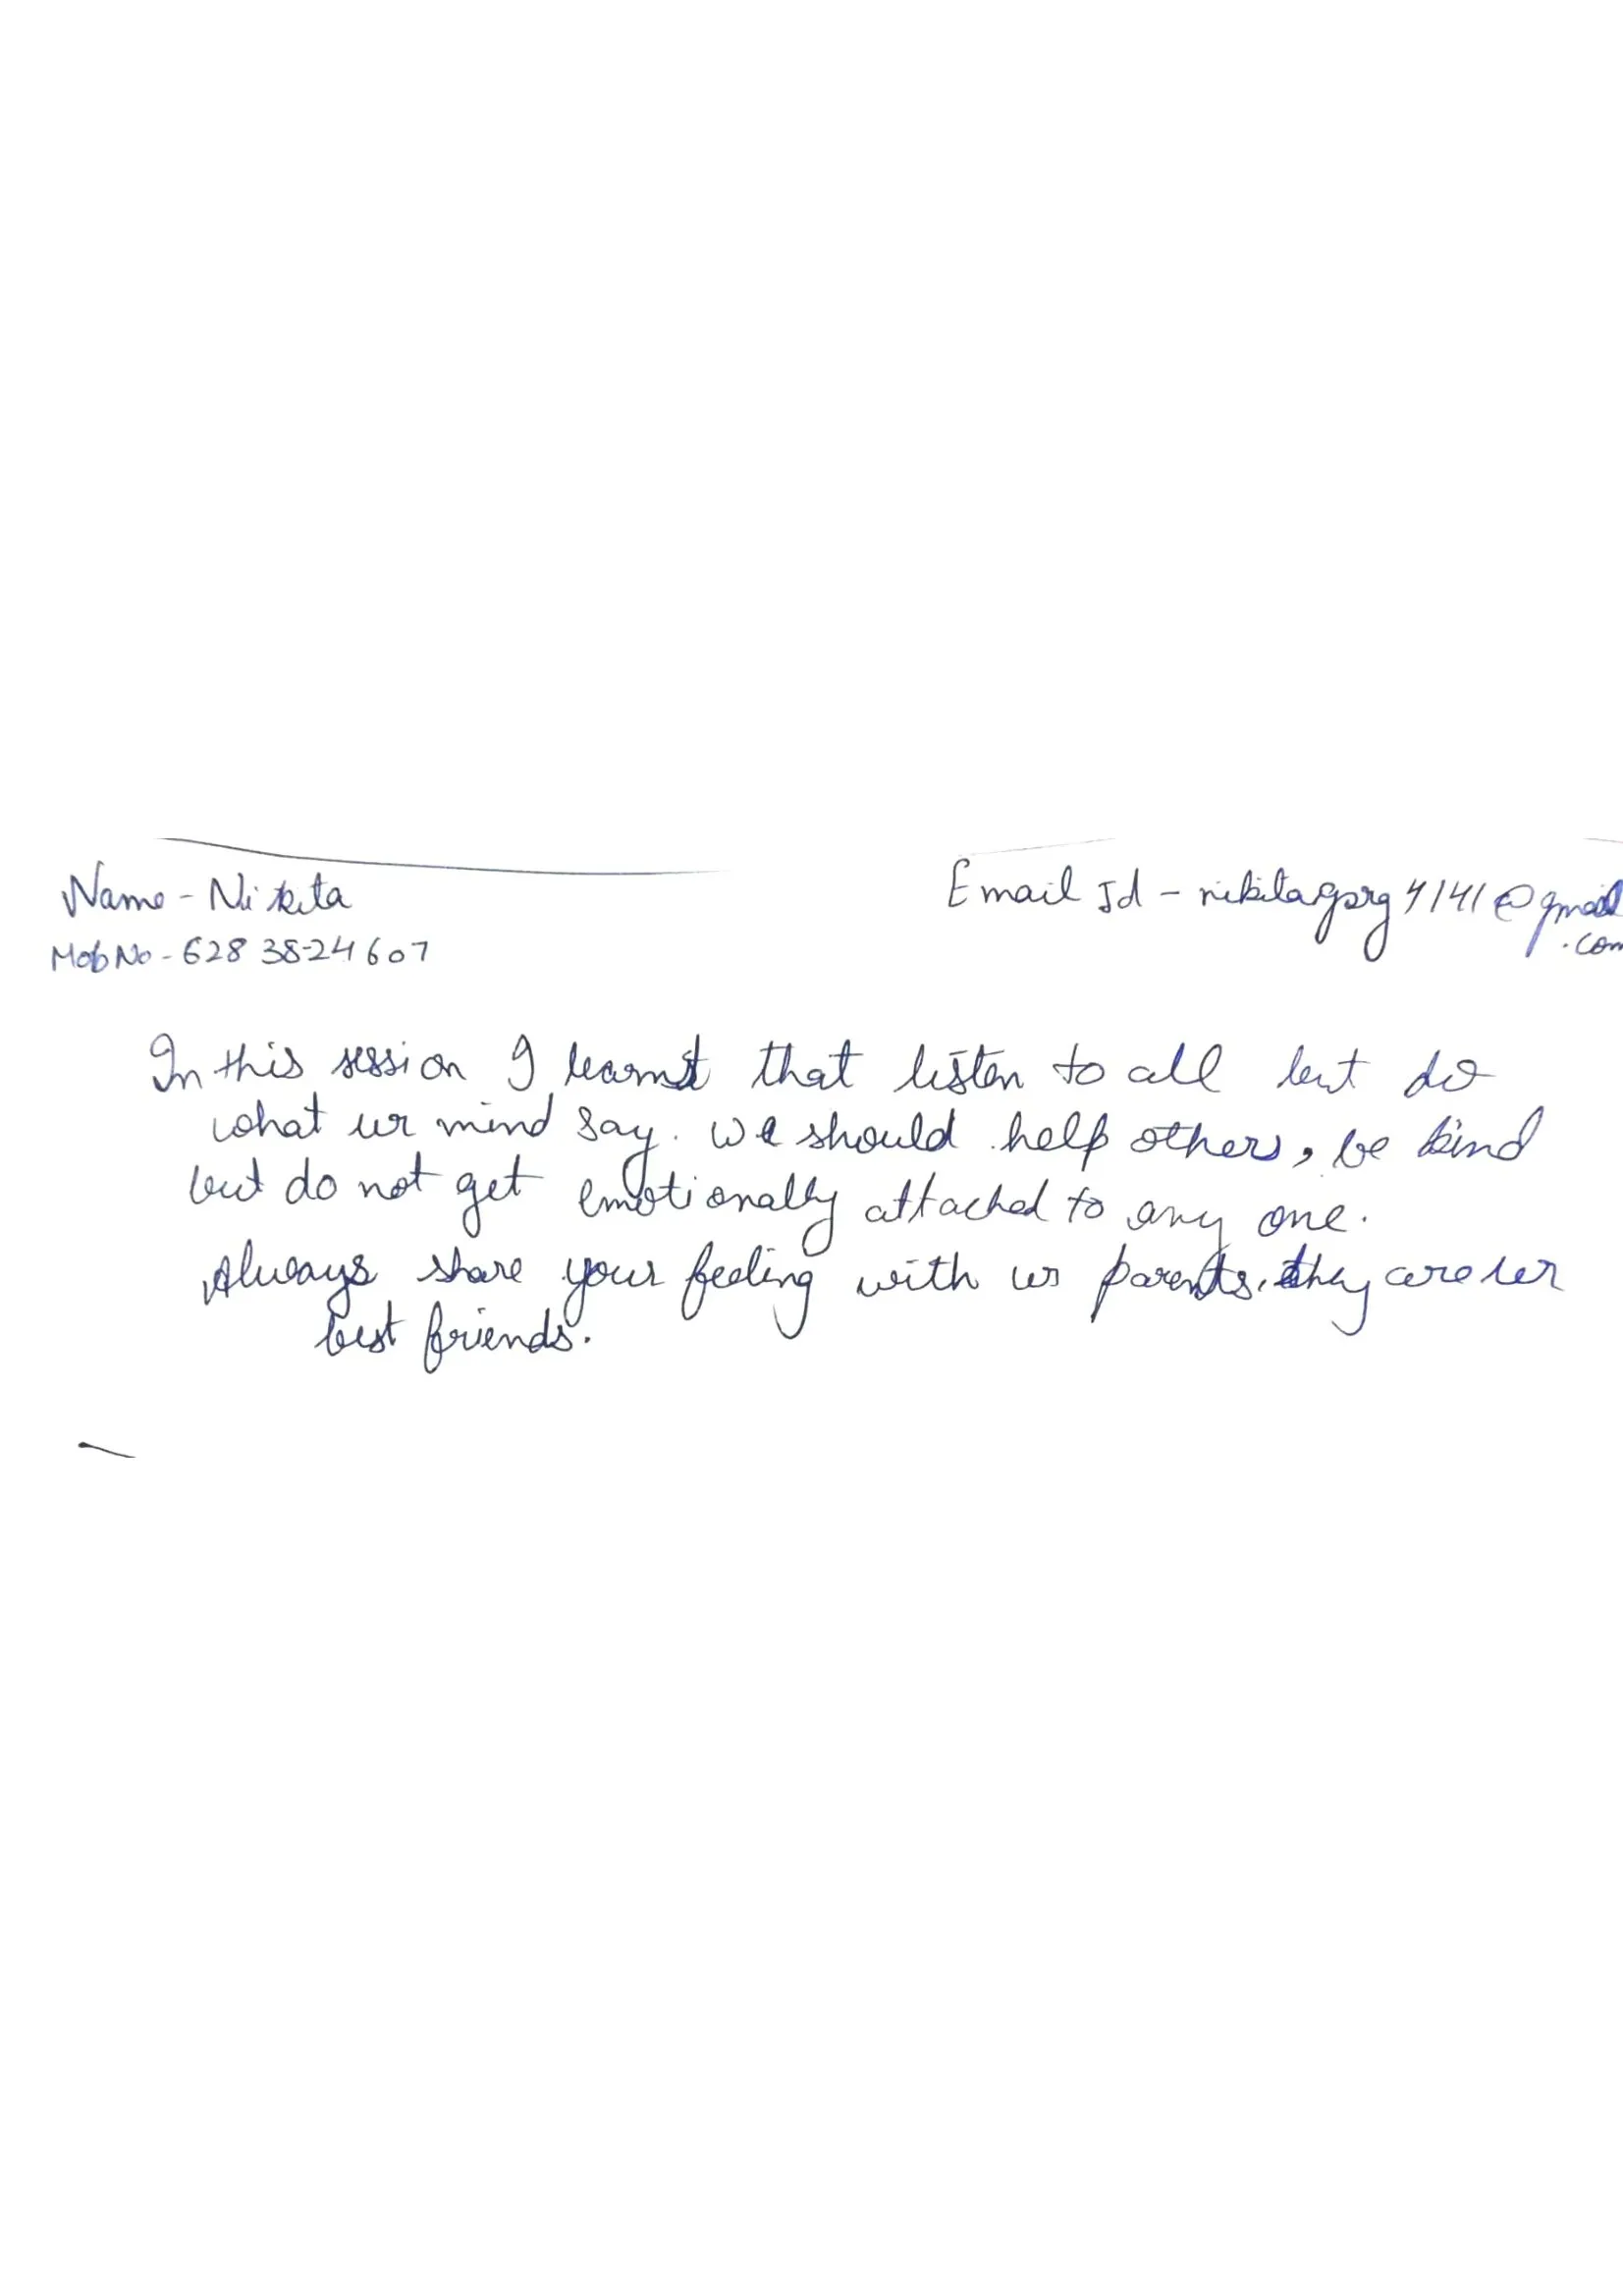 Name - Nikita
Email Id - nikitagarg4141@gmail
.com
Mob No - 628 38-24607
In this session I learnt that listen to all but do
what ur mind say. We should help others, be kind
but do not get emotionally attached to any one.
Always share your feeling with ur parents, they are ur
best friends.